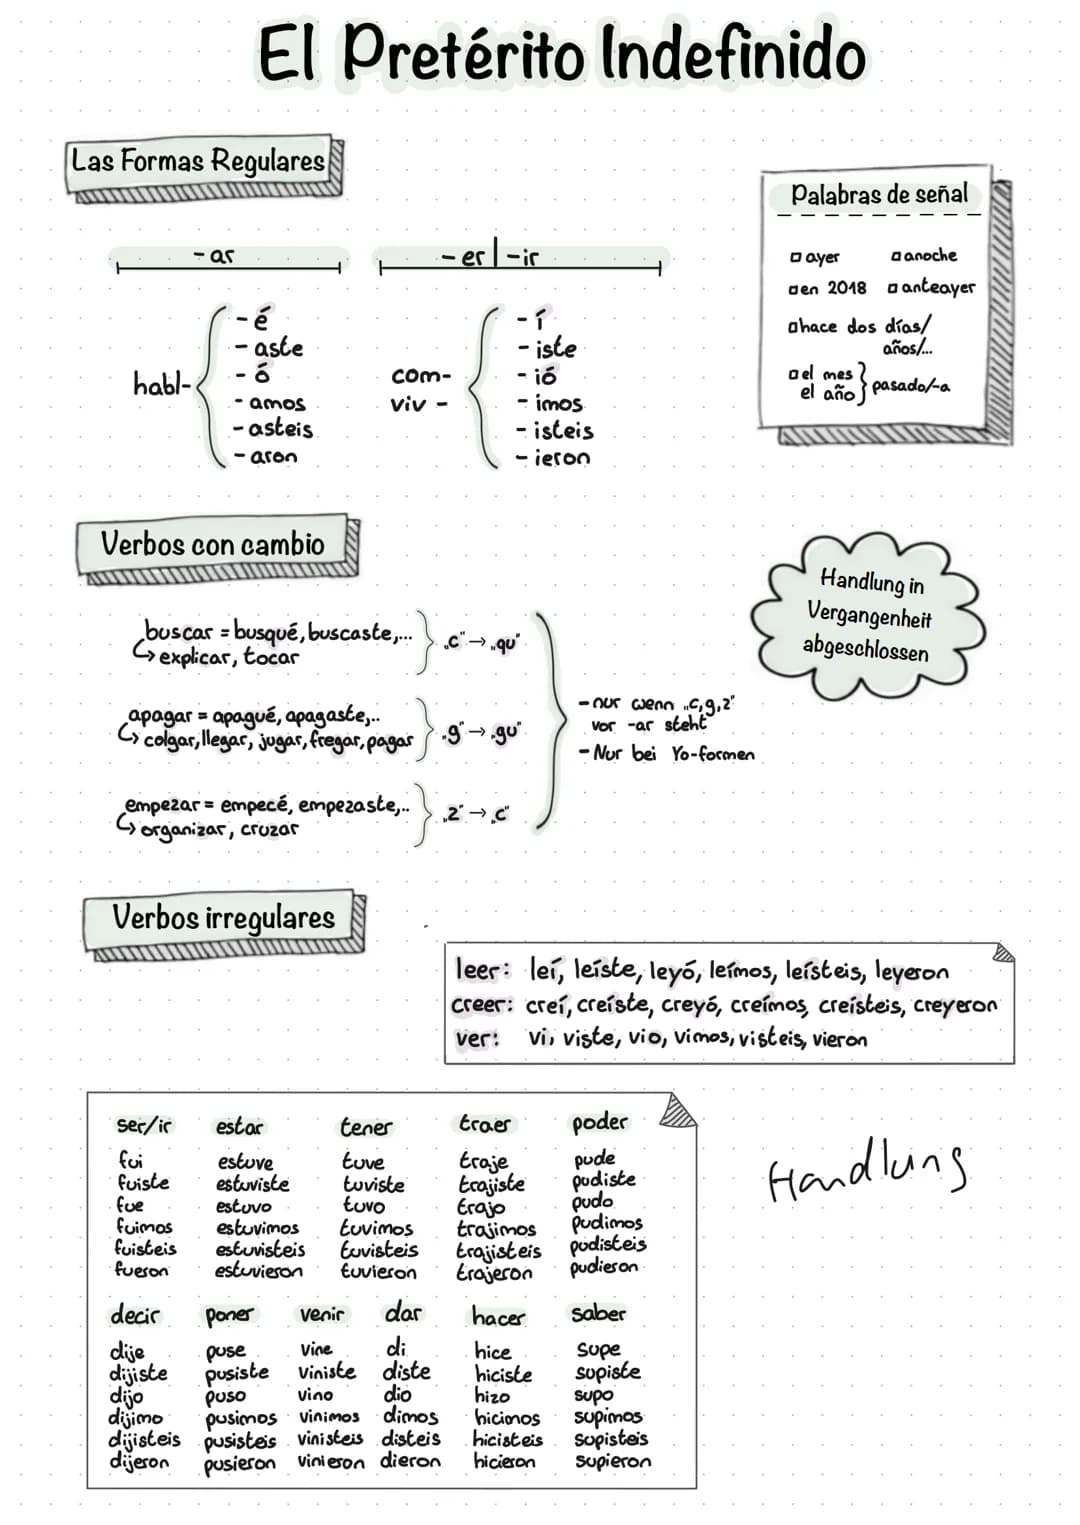 El Pretérito Indefinido
Las Formas Regulares
Palabras de señal
-ar
-er|-ir
□ ayer □ anoche
□ en 2018 □ anteayer
□ hace dos días/
años/...
□ el mes
el año } pasado/-a
habl-
- é
- aste
- ó
- amos
- asteis
- aron
com-
viv -
- í
- iste
- ió
- imos
- isteis
- ieron
Verbos con cambio
Handlung in
Vergangenheit
abgeschlossen
buscar = busqué, buscaste,...
↳ explicar, tocar
„c" → „qu"
apagar = apagué, apagaste,..
↳ colgar, llegar, jugar, fregar, pagar
„g" → „gu"
empezar = empecé, empezaste,..
↳ organizar, cruzar
„z" → „c"
- nur wenn „c,g,z"
vor -ar steht
- Nur bei Yo-formen
Verbos irregulares
leer: leí, leíste, leyó, leímos, leísteis, leyeron
creer: creí, creíste, creyó, creímos, creísteis, creyeron
ver: vi, viste, vio, vimos, visteis, vieron
ser/ir estar tener traer poder
fui estuve tuve traje pude
fuiste estuviste tuviste trajiste pudiste
fue estuvo tuvo trajo pudo
fuimos estuvimos tuvimos trajimos pudimos
fuisteis estuvisteis tuvisteis trajisteis pudisteis
fueron estuvieron tuvieron trajeron pudieron
Handlung
decir poner venir dar hacer saber
dije puse vine di hice supe
dijiste pusiste viniste diste hiciste supiste
dijo puso vino dio hizo supo
dijimo pusimos vinimos dimos hicimos supimos
dijisteis pusisteis vinisteis disteis hicisteis supisteis
dijeron pusieron vinieron dieron hicieron supieron